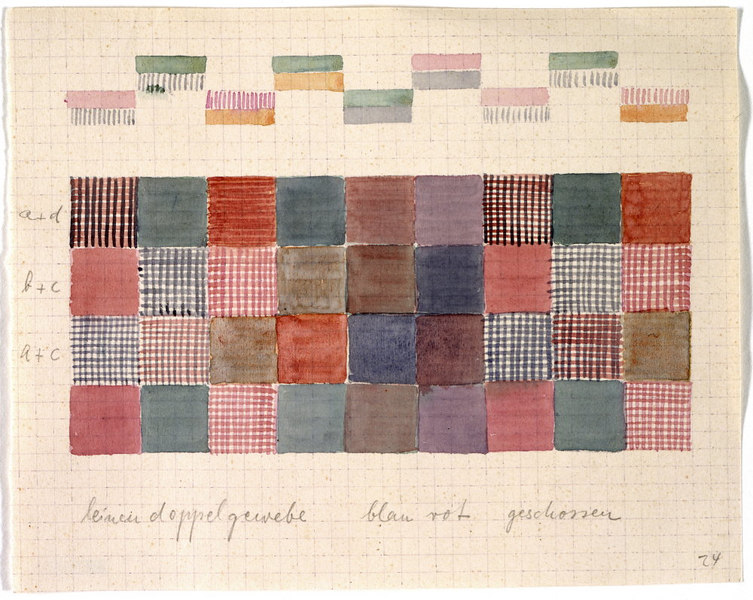 a+d
b+c
a+c
leinen doppelgewebe blau rot geschossen
24